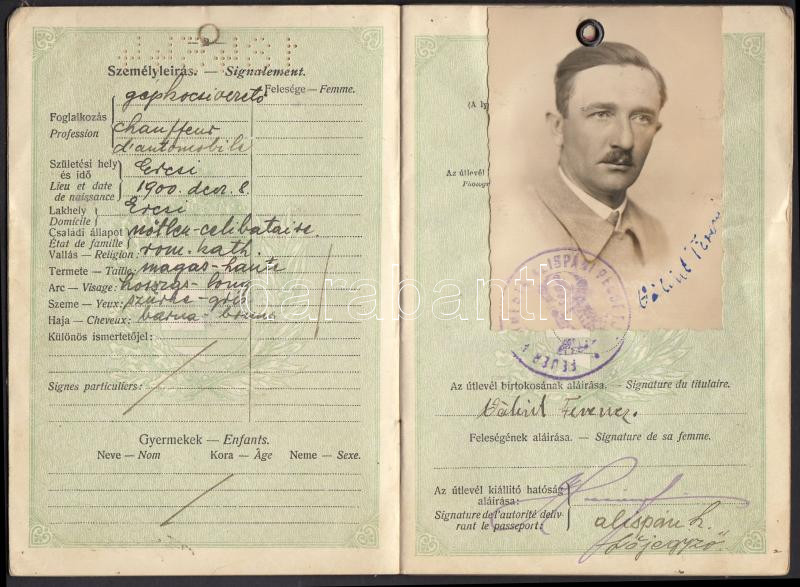 — 2 —
Személyleírás. — Signalement.
gépkocsivezető
Felesége — Femme.
Foglalkozás
Profession
chauffeur
d'automobile
Születési hely és idő
Lieu et date de naissance
Ercsi
1900. dec. 8.
Lakhely
Domicile
Ercsi
Családi állapot
État de famille
nőtlen - celibataire.
Vallás — Religion: rom. kath.
Termete — Taille: magas - haute
Arc — Visage: hosszas - long
Szeme — Yeux: szürke - gris
Haja — Cheveux: barna - bruns
Különös ismertetőjel:
Signes particuliers:
Gyermekek — Enfants.
Neve — Nom Kora — Âge Neme — Sexe.
(A
Az útlevél
Photogr
Bálint Feren
FEJÉR
darabanth
Az útlevél birtokosának aláírása. — Signature du titulaire.
Bálint Ferencz.
Feleségének aláírása. — Signature de sa femme.
Az útlevél kiállító hatóság aláírása:
Signature de l'autorité delivrant le passeport:
alispán h.
főjegyző.